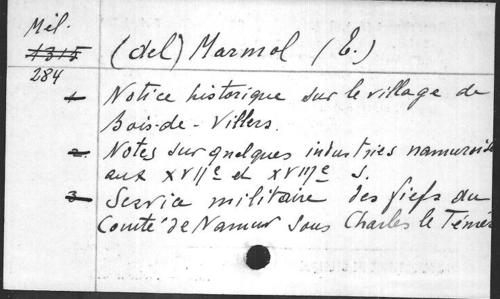 Mél.
1315
284
(del) Marmol (E.)
1. Notice historique sur le village de
Bois-de-Villers.
2. Notes sur quelques industries namurois
aux XVIIe et XVIIIe s.
3 Service militaire des fiefs du
Comté de Namur sous Charles le Témér